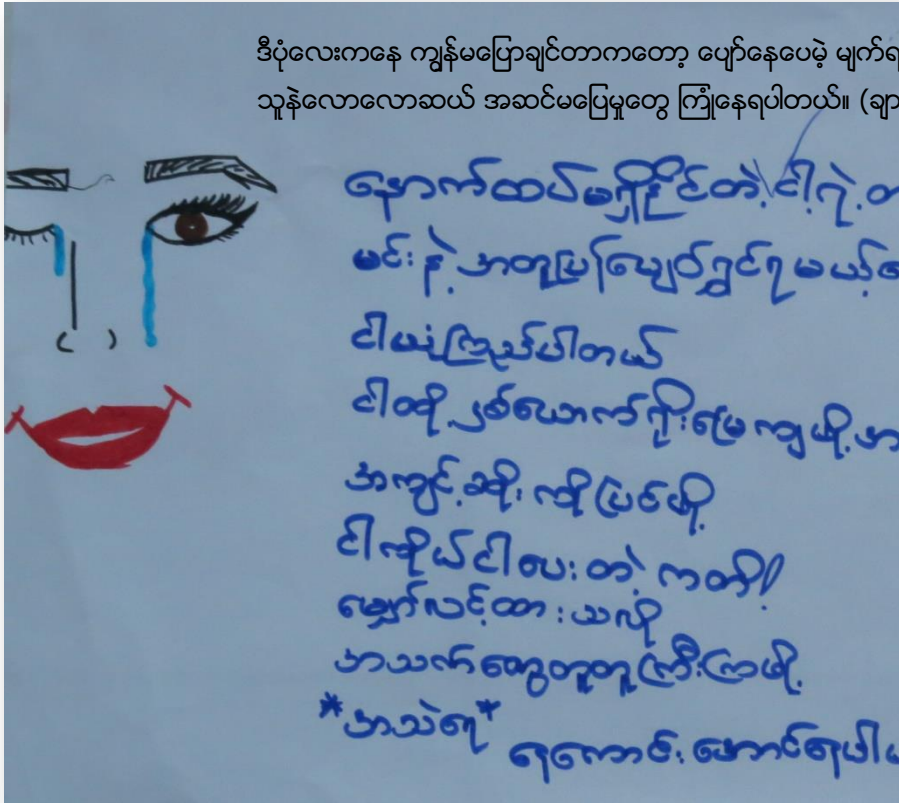 ဒီပုံလေးကနေ ကျွန်မပြောချင်တာကတော့ ပျော်နေပေမဲ့ မျက်ရ
သူနဲ့လောလောဆယ် အဆင်မပြေမှုတွေ ကြုံနေရပါတယ်။ (ချာ
နောက်ထပ်မရှိနိုင်တဲ့ ငါ့ရဲ့
မင်းနဲ့ အတူပြန်ပျော်ရွှင်ရမယ့်
ငါယုံကြည်ပါတယ်
ငါတို့ ၂စ်ယောက်ရိုးမြေကျဖို့
အကျင့်ဆိုးကိုပြင်ဖို့
ငါကိုယ်ငါပေးတဲ့ ကတိ!
မျှော်လင့်ထားသလို
အသက်တွေတူတူကြီးကြဖို့
*အသဲရေ* နေကောင်းအောင်နေပါ